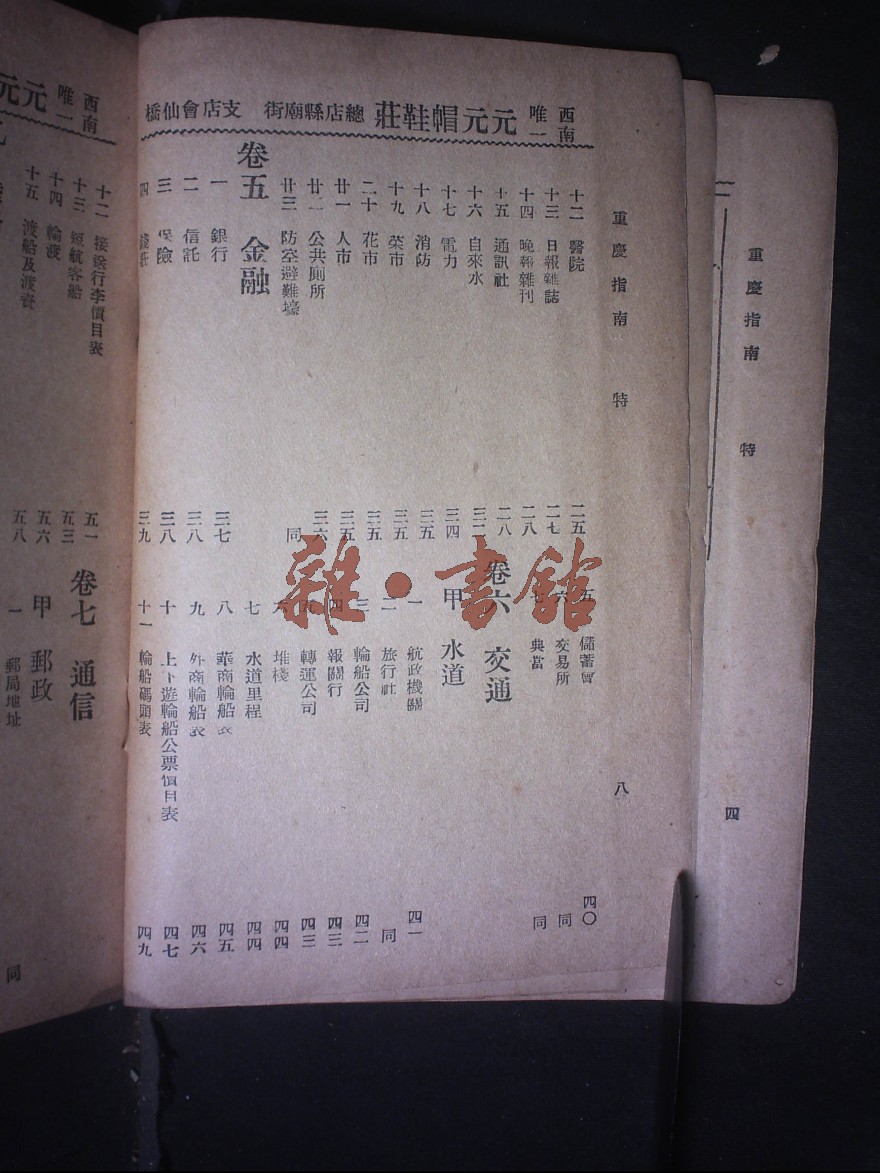 重慶指南 特 四
重慶指南 特 八
西南唯一 元元帽鞋莊 總店縣廟街 支店會仙橋
十二 醫院 二五
十三 日報雜誌 二七
十四 晚報雜刊 二八
十五 通訊社 二八
十六 自來水 三二
十七 電力 三四
十八 消防 三五
十九 菜市 三五
二十 花市 三五
廿一 人市 三五
廿二 公共厠所 三六
廿三 防空避難壕 同
卷五 金融
一 銀行 三七
二 信託 三八
三 保險 三八
四 錢莊 三九
五 儲蓄會 四〇
六 交易所 同
七 典當 同
卷六 交通
甲 水道
一 航政機關 四一
二 旅行社 同
三 輪船公司 四二
四 報關行 四三
五 轉運公司 四三
六 堆棧 四四
七 水道里程 四四
八 華商輪船表 四五
九 外商輪船表 四六
十 上下遊輪船公票價目表 四七
十一 輪船碼頭表 四九
雜·書館
西南唯一 元元
十二 接送行李價目表 五一
十三 短航客船 五三
十四 輪渡 五六
十五 渡船及渡資 五八
卷七 通信
甲 郵政
一 郵局地址 同